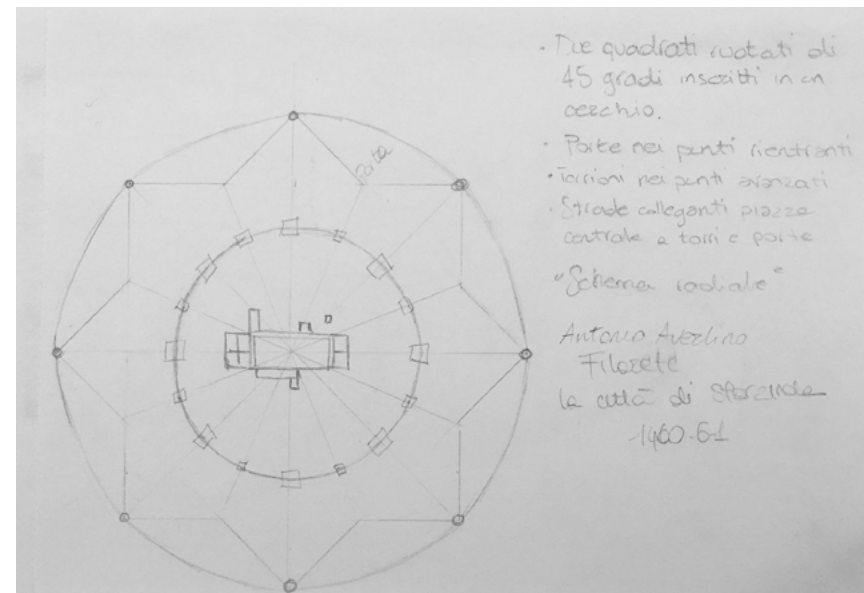 Porta
• Due quadrati ruotati di
45 gradi inscritti in un
cerchio.
• Porte nei punti rientranti
• Torrioni nei punti avanzati
• Strade colleganti piazza
centrale a torri e porte
"Schema radiale"
Antonio Averlino
Filarete
la città di Sforzinda
1460-64